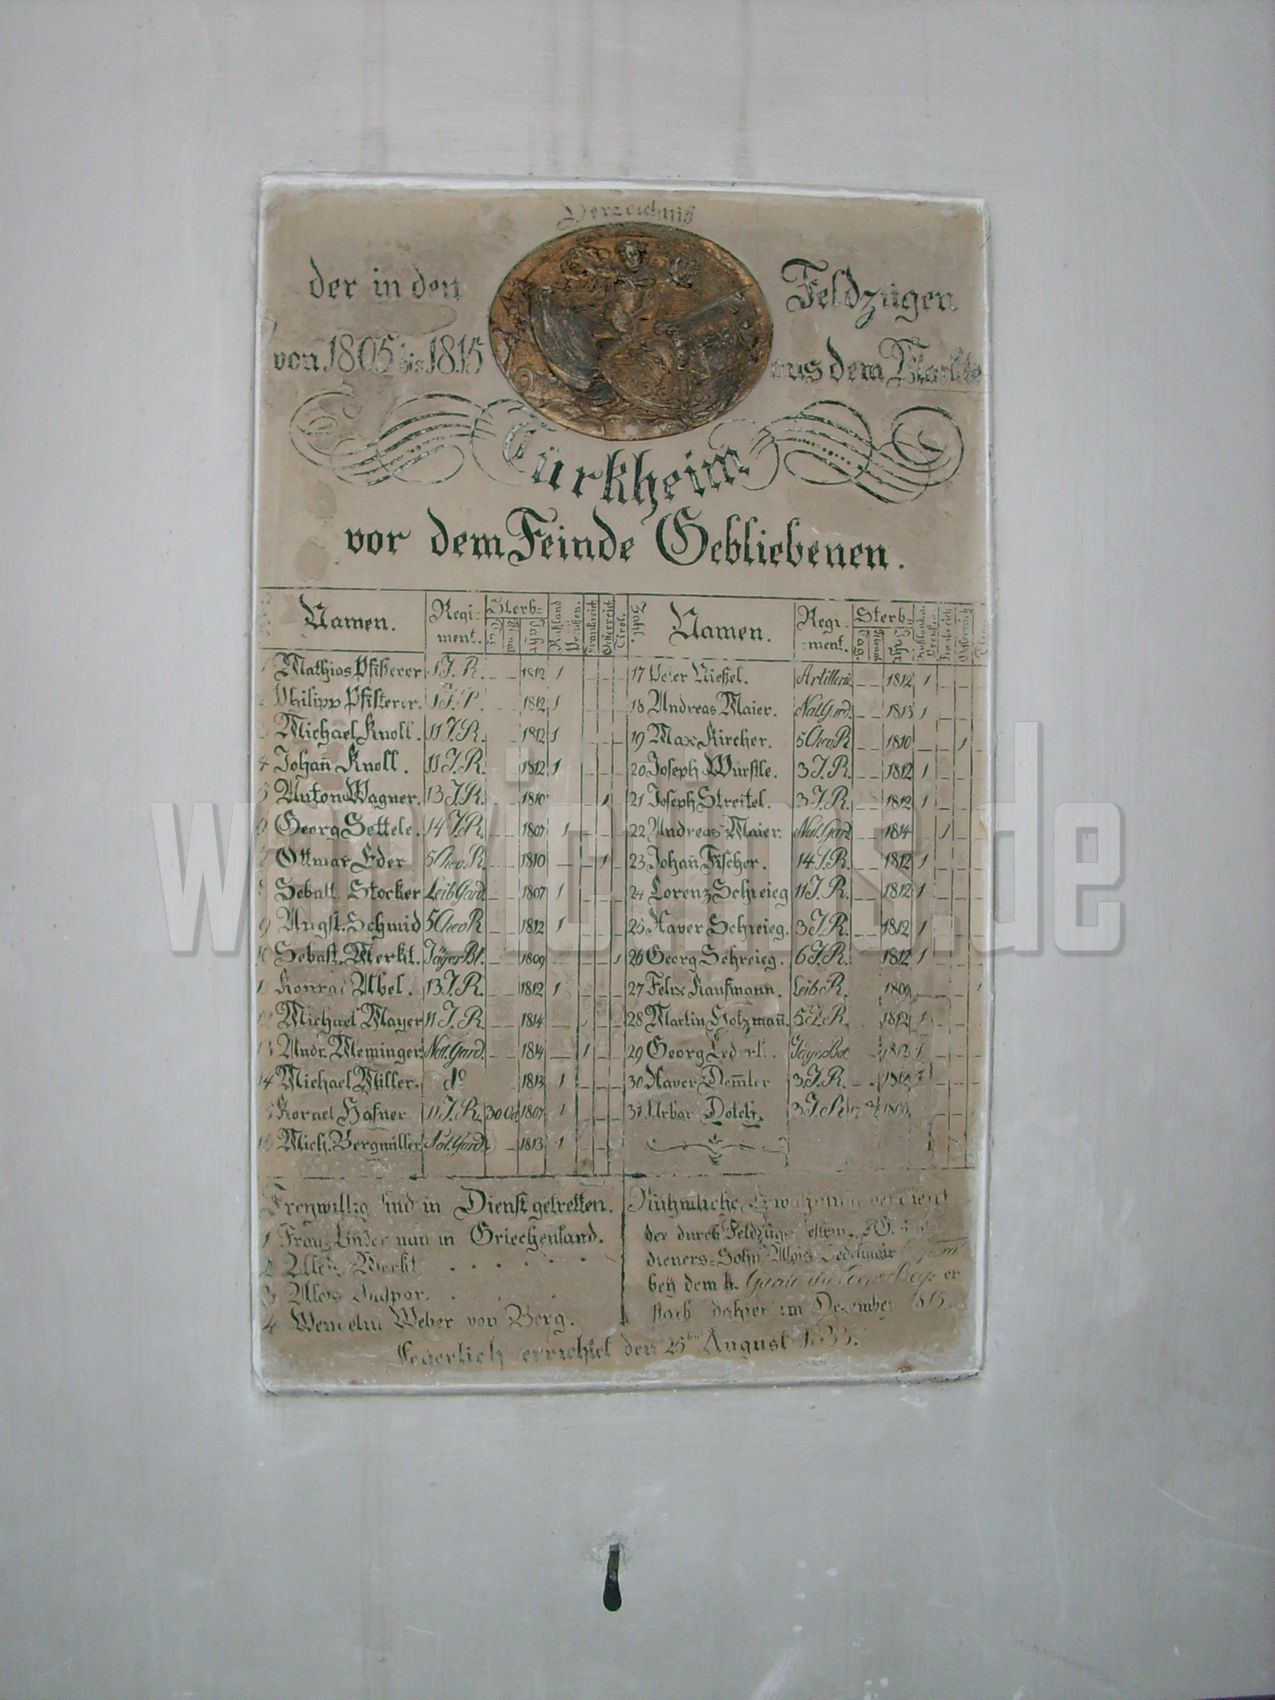 Verzeichniß
der in den Feldzügen
von 1805 bis 1815 aus dem Markte
Türkheim
vor dem Feinde Gebliebenen.
Namen. Regiment. Sterb- Tag. Monat Jahr Rußland Preußen. Frankreich Östereich Tirol.
1 Mathias Pfisterer 1 J. R. 1812 1
2 Philipp Pfisterer. 1 J. R. 1812 1
3 Michael Knoll. 11 J. R. 1812 1
4 Johan̄ Knoll. 11 J. R. 1812 1
5 Anton Wagner. 13 J. R. 1810 1
6 Georg Settele. 14 J. R. 1807 1
7 Ottmar Eder 5 Chev. R. 1810 1
8 Sebast. Stocker Leib Gard 1807 1
9 Augst. Schmid 5 Chev R. 1812 1
10 Sebast. Merkt. Jäger Bt. 1809 1
11 Konrad Abel. 13 J. R. 1812 1
12 Michael Mayer 11 J. R. 1814
13 Andr. Meminger Nat. Gard. 1814 1
14 Michael Miller. do 1813 1
15 Kornel Hafner 11 J. R. 30 Oct 1807 1
16 Mich. Bergmiller Nat. Gard 1813 1
Zahl. Namen. Regiment. Sterb- Tag. Monat Jahr Rußland Preußen. Frankreich Österreich
17 Peter Nießel. Artillerie 1812 1
18 Andreas Maier. Nat. Gard. 1813 1
19 Max Kircher. 5 Chev R. 1810 1
20 Joseph Würstle. 3 J. R. 1812 1
21 Joseph Streitel. 3 J. R. 1812 1
22 Andreas Maier. Nat. Gard 1814 1
23 Johan̄ Fischer. 14 J. R. 1812 1
24 Lorenz Schreieg 11 J. R. 1812 1
25 Xaver Schreieg. 3 J. R. 1812 1
26 Georg Schreieg. 6 J. R. 1812 1
27 Felix Kaufmann. Leib R. 1809
28 Martin Holzman̄. 5 J. R. 1812 1
29 Georg Jäger Bat 1812 1
30 Xaver Dem̄ler 3 J. R. 1812 1
31 Urban 3 J. R. 17
Freywillig sind in Dienst getretten.
1 Franz nun in Griechenland.
2 Alois Merkt
3 Alois Gaspar.
4 Wendelin Weber von Berg.
Rühmliche Erwähnung verdient
der durch Feldzüge
dieners-Sohn Alois
bey dem k. er
starb dahier im Dezember
Feyerlich errichtet den 25ten August 1833.
www.vimudeap.de